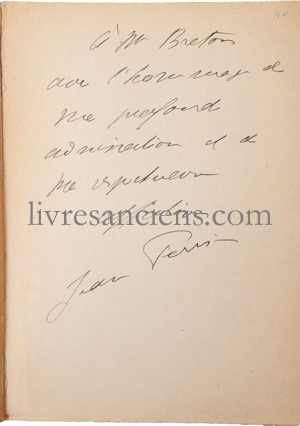 à Mr Breton
avec l'hommage de
ma profonde
admiration et de
ma respectueuse
affection
livresanciens.com
Jean Perrin